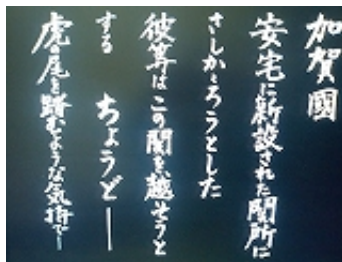 加賀國
安宅に新設された関所に
さしかゝろうとした
彼等はこの関を、越そうと
する ちょうど──
虎の尾を踏むような気持で──